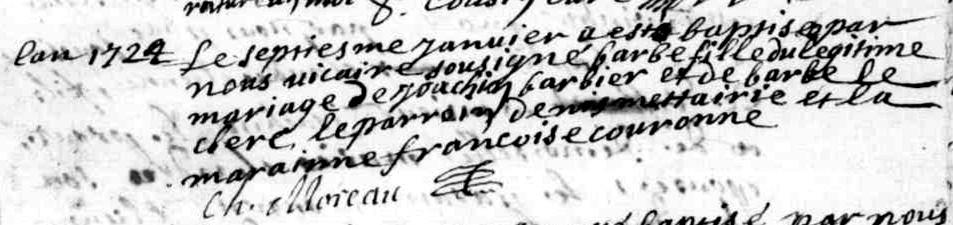 lan 1724 Le septiesme janvier a esté baptisé par
nous vicaire sousigné barbe fille du legitime
mariage de joachin barbier et de barbe le
clerc, le parrain denis mettairie et la
marainne francoise couronne
Ch. Moreau
baptisé par nous